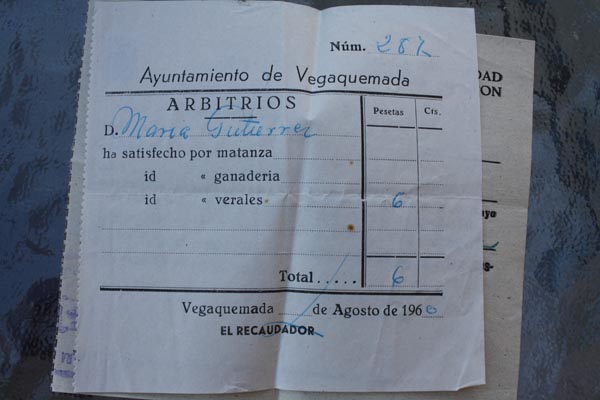 Núm. 287
Ayuntamiento de Vegaquemada
ARBITRIOS
Pesetas Cts.
D. Maria Gutierrez
ha satisfecho por matanza
id « ganaderia
id « verales 6
Total..... 6
Vegaquemada de Agosto de 1966
EL RECAUDADOR
DAD
ON